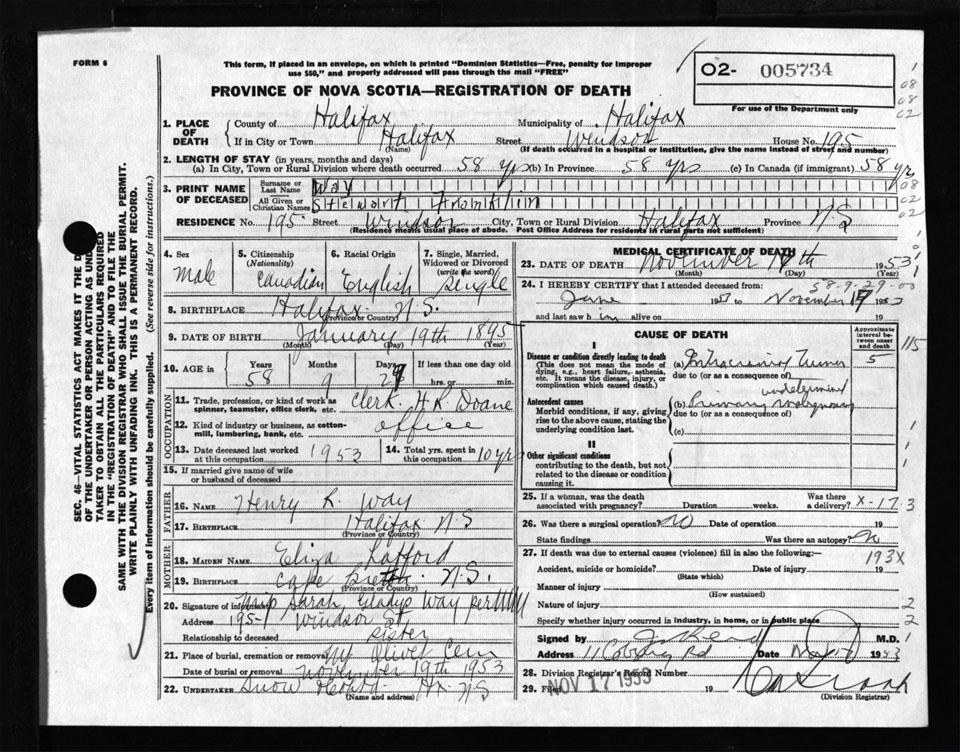 FORM 6
This form, if placed in an envelope, on which is printed "Dominion Statistics—Free, penalty for improper
use $50," and properly addressed will pass through the mail "FREE"
O2- 005734
For use of the Department only
PROVINCE OF NOVA SCOTIA—REGISTRATION OF DEATH
08
08
02
1. PLACE OF DEATH
County of Halifax Municipality of Halifax
If in City or Town Halifax Street Windsor House No. 195
(Name) (If death occurred in a hospital or institution, give the name instead of street and number)
2. LENGTH OF STAY (in years, months and days)
(a) In City, Town or Rural Division where death occurred 58 yrs (b) In Province 58 yrs (c) In Canada (if immigrant) 58 yrs
3. PRINT NAME OF DECEASED
Surname or Last Name Way
All Given or Christian Names Stewart Franklin
08
02
02
RESIDENCE No. 195 Street Windsor City, Town or Rural Division Halifax Province N.S
(Residence means usual place of abode. Post Office Address for residents in rural parts not sufficient)
4. Sex
Male
5. Citizenship
(Nationality)
Canadian
6. Racial Origin
English
7. Single, Married,
Widowed or Divorced
(write the word)
Single
8. BIRTHPLACE Halifax N.S.
(Province or Country)
9. DATE OF BIRTH January 19th 1895
(Month) (Day) (Year)
10. AGE in
Years
58
Months
9
Days
If less than one day old
hrs. or min.
OCCUPATION
11. Trade, profession, or kind of work as
spinner, teamster, office clerk, etc. Clerk. H.R. Doane
12. Kind of industry or business, as cotton-
mill, lumbering, bank, etc. office
13. Date deceased last worked
at this occupation 1953
14. Total yrs. spent in
this occupation 10 yrs
15. If married give name of wife
or husband of deceased
FATHER
16. NAME Henry R. Way
17. BIRTHPLACE Halifax N.S
(Province or Country)
MOTHER
18. MAIDEN NAME Eliza Lafford
19. BIRTHPLACE Cape Breton. N.S.
(Province or Country)
20. Signature of informant Miss Sarah Gladys Way per
Address 195 Windsor St
Relationship to deceased sister
21. Place of burial, cremation or removal Mt Olivet Cem
Date of burial or removal November 19th 1953
22. UNDERTAKER Snow Hx N.S
(Name and address)
MEDICAL CERTIFICATE OF DEATH
23. DATE OF DEATH November 1953
(Month) (Day) (Year)
24. I HEREBY CERTIFY that I attended deceased from: 58-9-29-00
June 19 to November 17 1953
and last saw him alive on 19
CAUSE OF DEATH
Approximate
interval between
onset and death
I
Disease or condition directly leading to death
(This does not mean the mode of
dying, e.g., heart failure, asthenia,
etc. It means the disease, injury, or
complication which caused death.)
(a) Intracranial Tumor 5
due to (or as a consequence of)
Antecedent causes
Morbid conditions, if any, giving
rise to the above cause, stating the
underlying condition last.
undetermined
(b) Primary malignancy
due to (or as a consequence of)
(c)
II
Other significant conditions
contributing to the death, but not
related to the disease or condition
causing it.
25. If a woman, was the death
associated with pregnancy? Duration weeks.
Was there
a delivery? X-17.3
26. Was there a surgical operation? No Date of operation 19
State findings Was there an autopsy? No
27. If death was due to external causes (violence) fill in also the following:— 193X
Accident, suicide or homicide? Date of injury 19
(State which)
Manner of injury
(How sustained)
Nature of injury
Specify whether injury occurred in industry, in home, or in public place
Signed by M.D.
Address 11 Coburg Rd Date Nov 17 1953
28. Division Registrar's Record Number
29. Filed NOV 17 1953 19
(Division Registrar)
SEC. 46—VITAL STATISTICS ACT MAKES IT THE
OF THE UNDERTAKER OR PERSON ACTING AS
TAKER TO OBTAIN ALL THE PARTICULARS REQUIRED
IN THE "REGISTRATION OF DEATH" AND TO FILE THE
SAME WITH THE DIVISION REGISTRAR WHO SHALL ISSUE THE BURIAL PERMIT.
WRITE PLAINLY WITH UNFADING INK. THIS IS A PERMANENT RECORD.
Every item of information should be carefully supplied. (See reverse side for instructions.)